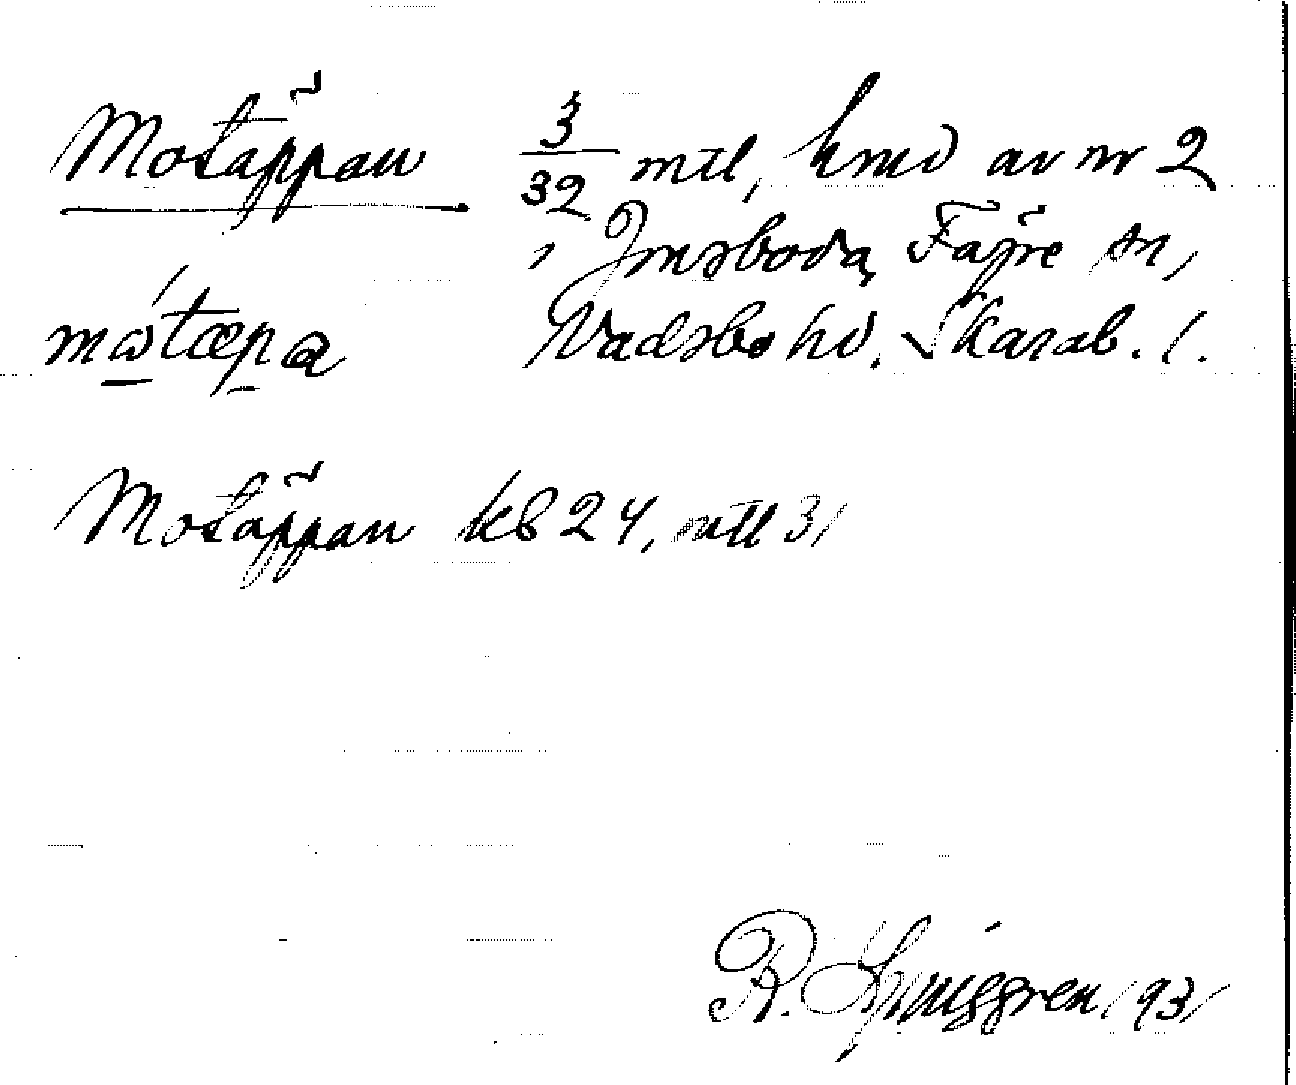 Motäppan 3/32 mtl, hmd av nr 2
i Jonsboda, Fägre sn,
mɷ́tæpa Vadsbo hd. Skarab. l.
Motäppan kb 24, mtl 31
R. Ljunggren 1931